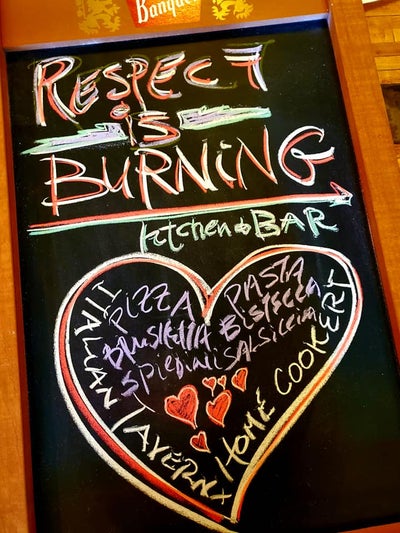 Banquet
RESPECT
is
BURNiNG
kitchen & BAR
PIZZA PASTA
BRUSKETTA BISTECCA
SPIEDINI SALSICCIA
ITALIAN TAVERN
HOME COOKERY